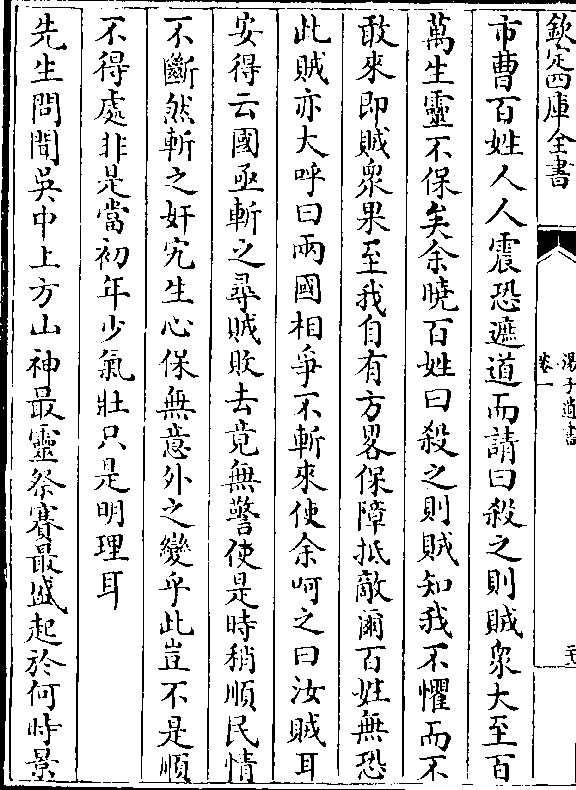 欽定四庫全書
湯子遺書
卷一
市曹百姓人人震恐遮道而請曰殺之則賊衆大至百
萬生靈不保矣余曉百姓曰殺之則賊知我不懼而不
敢來即賊衆果至我自有方畧保障抵敵爾百姓無恐
此賊亦大呼曰兩國相爭不斬來使余呵之曰汝賊耳
安得云國亟斬之尋賊敗去竟無警使是時稍順民情
不斷然斬之奸宄生心保無意外之變乎此豈不是順
不得處非是當初年少氣壯只是明理耳
先生問閶吳中上方山神最靈祭賽最盛起於何時景